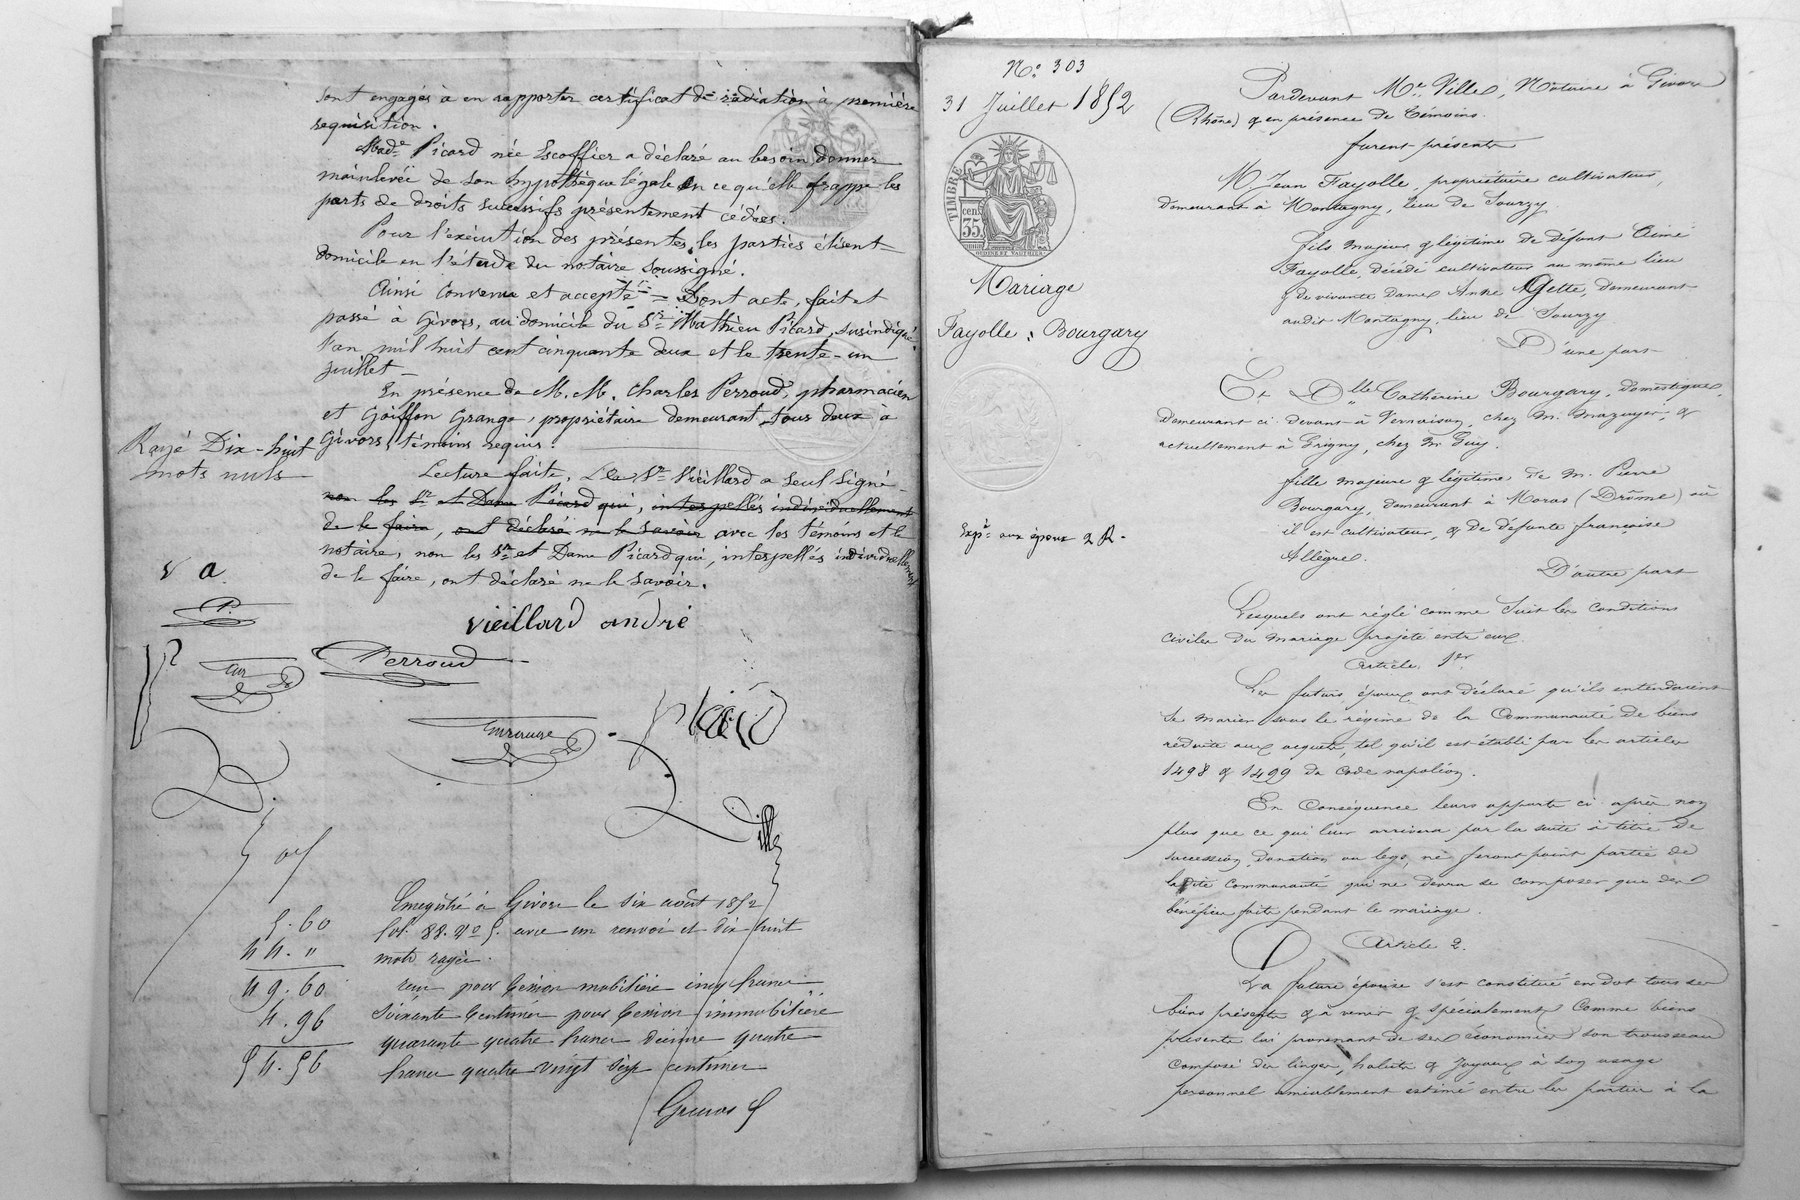 sont engagés à en rapporter certificat de radiation à première
requisition.
Made Picard née Escoffier a déclaré au besoin donner
mainlevée de son hypothèque légale en ce qu'elle frappe les
parts de droits successifs présentement cédées.
Pour l'exécution des présentes, les parties élisent
domicile en l'étude du notaire soussigné.
Ainsi convenu et accepté = Dont acte, fait et
passé à Givors, au domicile du Sr. Mathieu Picard, susindiqué,
l'an mil huit cent cinquante deux et le trente-un
juillet
En présence de M. M. Charles Perroud, pharmacien
et Goiffon Grange, propriétaire demeurant tous deux à
Givors, témoins requis.
Rayé Dix-huit
mots nuls
Lecture faite, Le Sr. Vieillard a seul signé
non les Sr. et Dame Picard qui, interpellés individuellement
de le faire, ont déclaré ne le savoir avec les témoins et le
notaire, non les Sr. et Dame Picard qui, interpellés individuellement
de le faire, ont déclaré ne le savoir.
v a
P.
vieillard andré
Perroud
picard
Ville
Enregistré à Givors le six août 1852
fol. 88. Vo 5. avec un renvoi et dix huit
mots rayés.
reçu pour cession mobilière cinq francs
soixante centimes pour cession immobilière
quarante quatre francs decime quatre
francs quatre vingt seize centimes
5.60
44. "
49.60
4.96
54.56
No. 303
31 Juillet 1852
TIMBRE
35
cen.
Mariage
Fayolle : Bourgary
Expn. aux époux 2 R.
Pardevant Me. Ville, Notaire à Givors
(Rhône) & en présence de témoins.
furent présents
M Jean Fayolle, propriétaire cultivateur,
demeurant à Montagny, lieu de Sourzy
fils majeur & légitime de défunt Aimé
Fayolle, décédé cultivateur au même lieu
& de vivante dame Anne Gette, demeurant
audit Montagny, lieu de Sourzy.
D'une part
Et Dlle Catherine Bourgary, domestique,
demeurant ci devant à Vernaison, chez M. Mazuyer, &
actuellement à Grigny, chez M. Guy.
fille majeure & légitime de M. Pierre
Bourgary, demeurant à Moras (Drôme) où
il est cultivateur, & de défunte françoise
Allègre.
D'autre part
Lesquels ont réglé comme suit les conditions
civiles du mariage projeté entr'eux.
Article 1er.
Les futurs époux ont déclaré qu'ils entendaient
se marier sous le régime de la Communauté de biens
réduite aux acquets, tel qu'il est établi par les articles
1498 & 1499 du Code napoléon.
En Conséquence leurs apports ci après non
plus que ce qui leur arrivera par la suite à titre de
succession, donation ou legs, ne feront point partie de
ladite communauté qui ne devra se composer que des
bénéfices faits pendant le mariage.
Article 2.
La future épouse s'est constitué en dot tous ses
biens présents & à venir & spécialement Comme biens
présents lui provenant de ses économies, son trousseau
composé de linges, habits & Joyaux à son usage
personnel amiablement estimé entre les parties à la